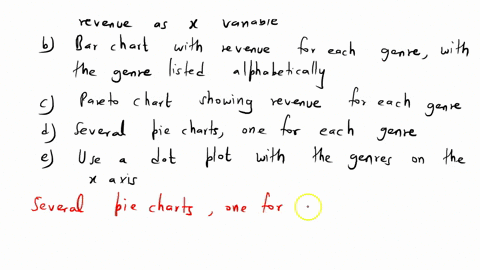 revenue as x variable
b) Bar chart with revenue for each genre, with
the genre listed alphabetically
c) Pareto chart showing revenue for each genre
d) Several pie charts, one for each genre
e) Use a dot plot with the genres on the
x axis
Several pie charts, one for